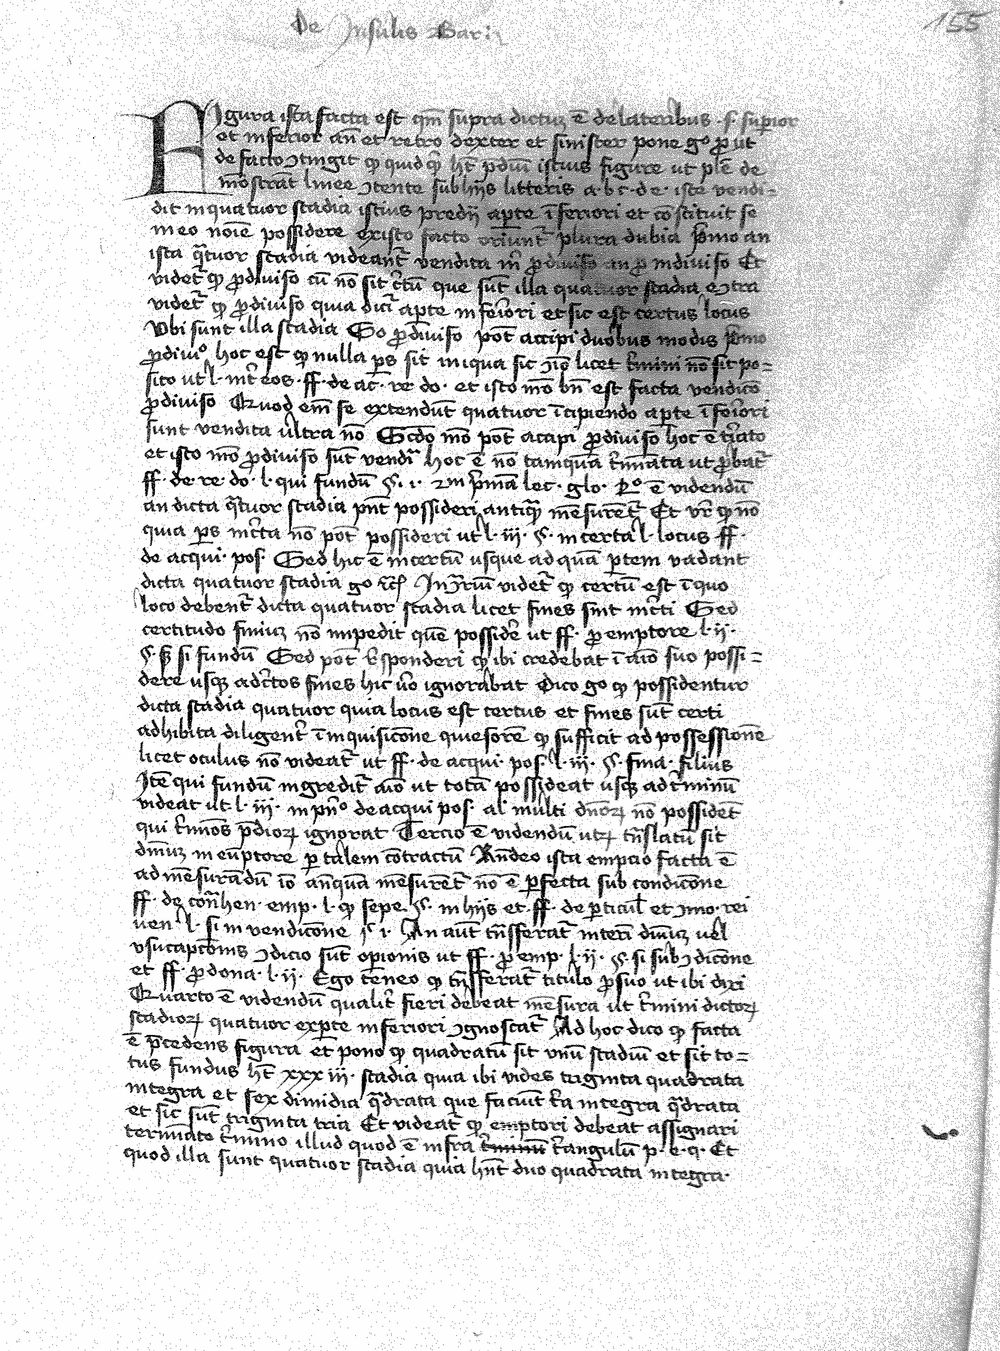 De Insulis Bar:
155
Figura ista facta est qm̄ supra dictuꝫ ē de lateribus · s · supior
et inferior an̄ et retro dexter et sinister pone gͦ ꝓ ut
de facto ꝯtingit ꝙ quidꝙ ht̄ p̄diū istius figure ut plē de
mōstrāt linee ꝯtente sub hijs litteris a · b · c · d · e · iste vendi-
dit in quatuor stadia istius predij aꝑte īferiori et cōstituit se
in eo noīe possidere existo facto oriūnt᷑ plura dubia p̄mo an
ista q̄tuor stadia videant᷑ vendita in ꝓ diuiso an ꝓ indiuiso Et
videt᷑ ꝙ ꝓdiuiso cū nō sit c̄tū que sūt illa quatuor stadia ecͦtra
videt᷑ ꝙ ꝓdiuiso quia dicit᷑ aꝑte inferiori et sic est certus locus
Vbi sunt illa stadia So ꝓdiuiso pōt accipi duobus modis p̄mo
ꝓdiuiͦ hoc est ꝙ nulla ꝑs sit in qua sic ꝯīo licet t̄mini nō sit po=
sito ut l · int̄ eos · ff · de ac̄ · re do · et isto mō bn̄ est facta vendicō
ꝓdiuiso Quod em̄ se extendūt quatuor īcipiendo aꝑte īferiori
sunt vendita ultra nō Scd̄o mō pōt accipi ꝓdiuiso hoc ē t̄iato
et isto mō ꝓdiuiso sūt vendi᷑ hoc ē nō tamquā t̄mīata ut ꝓbat᷑
ff · de re · do · l · qui fundū § · i · 2 in p̄mā lec · glo · 2ͦ ē videndū
an dicta q̄tuor stadia pn̄t possideri antiqꝫ mēsurent᷑ Et vr̄ ꝙ nō
quia ꝑs inc̄ta nō pōt possideri ut l · iij · § · incerta l · locus ff ·
de acqui · pos · Sed hic ē incertū usque ad quā ꝑtem vadant
dicta quatuor stadia go etc̄ In ꝯr̄iū videt᷑ ꝙ certū est ī quo
loco debent᷑ dicta quatuor stadia licet fines sint inc̄ti Sed
certitudo finiuꝫ nō impedit quē possid̄e ut ff · ꝓ emptore l · ij ·
§ · s; si fundū Sed pōt r̄sponderi ꝙ ibi credebat ī aīo suo possi=
dere usqꝫ ad c̄tos fines hic v̄o ignorabat Dico go ꝙ possidentur
dicta stadia quatuor quia locus est certus et fines sūt certi
adhibita diligent᷑ ī inquisicōne quiesorē ꝙ sufficit ad possessionē
licet oculus nō videat᷑ ut ff · de acqui · pos · l · iij · § · fina · filius
Itē qui fundū ingredit᷑ aīo ut totā possideat usqꝫ ad t̄minū
videat ut l · iij · in pn̄ᵒ de acqui pos · al multi dnōꝝ nō possidēt
qui t̄minos p̄dioꝝ ignorat Tercio ē videndū utꝝ tn̄slatū sit
dniuꝫ in ēuptore ꝑ talem cōtractū Rn̄deo ista empcio facta ē
ad mēsurādū iō anquā mēsurent᷑ nō ē ꝑfecta sub condicōne
ff · de cōn̄hen · emp · l · ꝙ sepe § · in hijs et ff · de ꝑticul᷑ et ꝯmo · rei
ven · l · si in vendicōne § i · An aūt tn̄sferat᷑ inteī dniuꝫ uel
vsucapcōnis ꝯdicio sūt opionis ut ff · ꝓ emp · l · ij · § · si sub ꝯdicōne
et ff ꝓ dona · l · ij · Ego tēneo ꝙ tn̄sferat᷑ titulo ꝓ suo ut ibi dixi
Quarto ē videndū qualit᷑ fieri debeat mēsura ut t̄mini dictoꝝ
stadioꝝ quatuor exꝑte inferiori ꝯgnoscat᷑ Ad hoc dico ꝙ facta
ē p̄cedens figura et pono ꝙ quadratū sit vnū stadiū et sit to=
tus fundus ht̄ xxxiij · stadia quia ibi vides triginta quadrata
integra et sex dimidia q̄drata que faciūt t̄a integra q̄drata
et sic sūt triginta tria Et videat᷑ ꝙ emptori debeat assignari
termīato t̄mino illud quod ē infra t̄minū t̄angulū p · e · q · Et
quod illa sunt quatuor stadia quia hn̄t duo quadrata integra ·